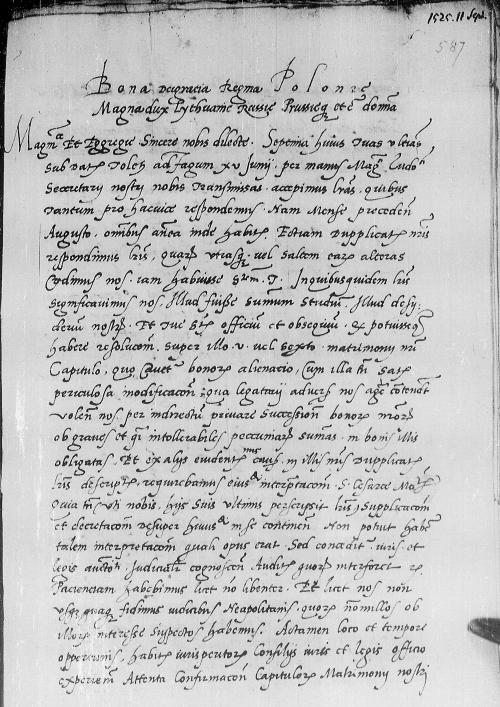 1525. 11 Sept.
587
Bona Dei gracia Regina Polonie
Magna dux Lythuanie Russie Prussieq et c domina
Magce Et Egregie Sincere nobis dilecte. Septima huius duas vras
sub dat Toleti ad fagum xv Junij. per manus Mag Ludo
Secretarij nostri nobis transmissas accepimus lras. quibus
tantum pro hac vice respondemus. Nam Mense preceden
Augusto. omnibus antea inde habit. Etiam Dupplicat nris
respondimus lris. quar vtrasq vel saltem earum alteras
Credimus nos. iam habuisse T. In quibusquidem lris
significavimus nos. Illud fuisse sumum studium. Illud desy-
derium nostrum. Et Tue officium et obsequium. potuisse
habere resolucom. super illo. v. vel sexto. matrimonij nri
Capitulo. quo Cavet bonor alienacio. Cum illa tn satis
periculosa modificacom qua legatarij advers nos age contendt
volen nos per indirectum privare succession bonor nror
ob graves et qi intollerabiles peccuniar sumas. in bonis illis
obligatas. Et ex alijs evidentmis causis. in illis nris Dupplicat
lris descript. requirebamus eius interpretacom. S. Cesaree Mat
Quia tn vti nobis. hijs suis vltimis perscripsit lris Supplicacom
et decretacom desuper huius in se continen Non potuit habe
talem interpretacom quali opus erat. Sed conceditur iuris et
legis Judiciali cognoscen Auditor quor interforet
Pacientiam habebimus licet no libenter. Et licet nos non
vsq quaq fidimus iudicibus Neapolitanis. quor nonnullos ob
illor interesse suspectos habemus. Attamen loco et tempore
opportunis. habit iurisperitor Consilijs iuris et legis officio
experiemur Attenta Confirmacom Capitulor Matrimony nostri